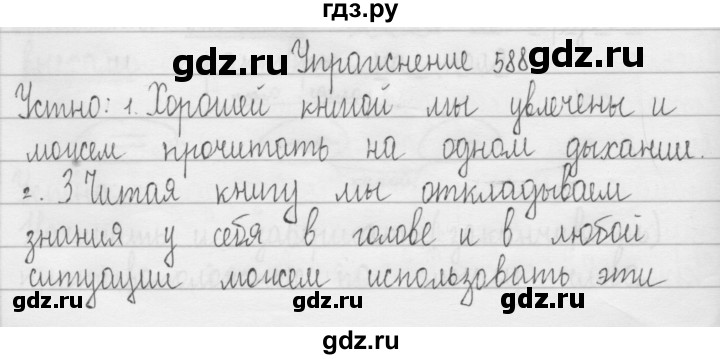 гдз.ру
gdz.ru
Упражнение 588
Устно: 1. Хорошей книгой мы увлечены и
можем прочитать на одном дыхании.
gdz.ru gdz.ru
2. 3 Читая книгу мы откладываем
знания у себя в голове и в любой
ситуации можем использовать эти
gdz.ru gdz.ru
gdz.ru